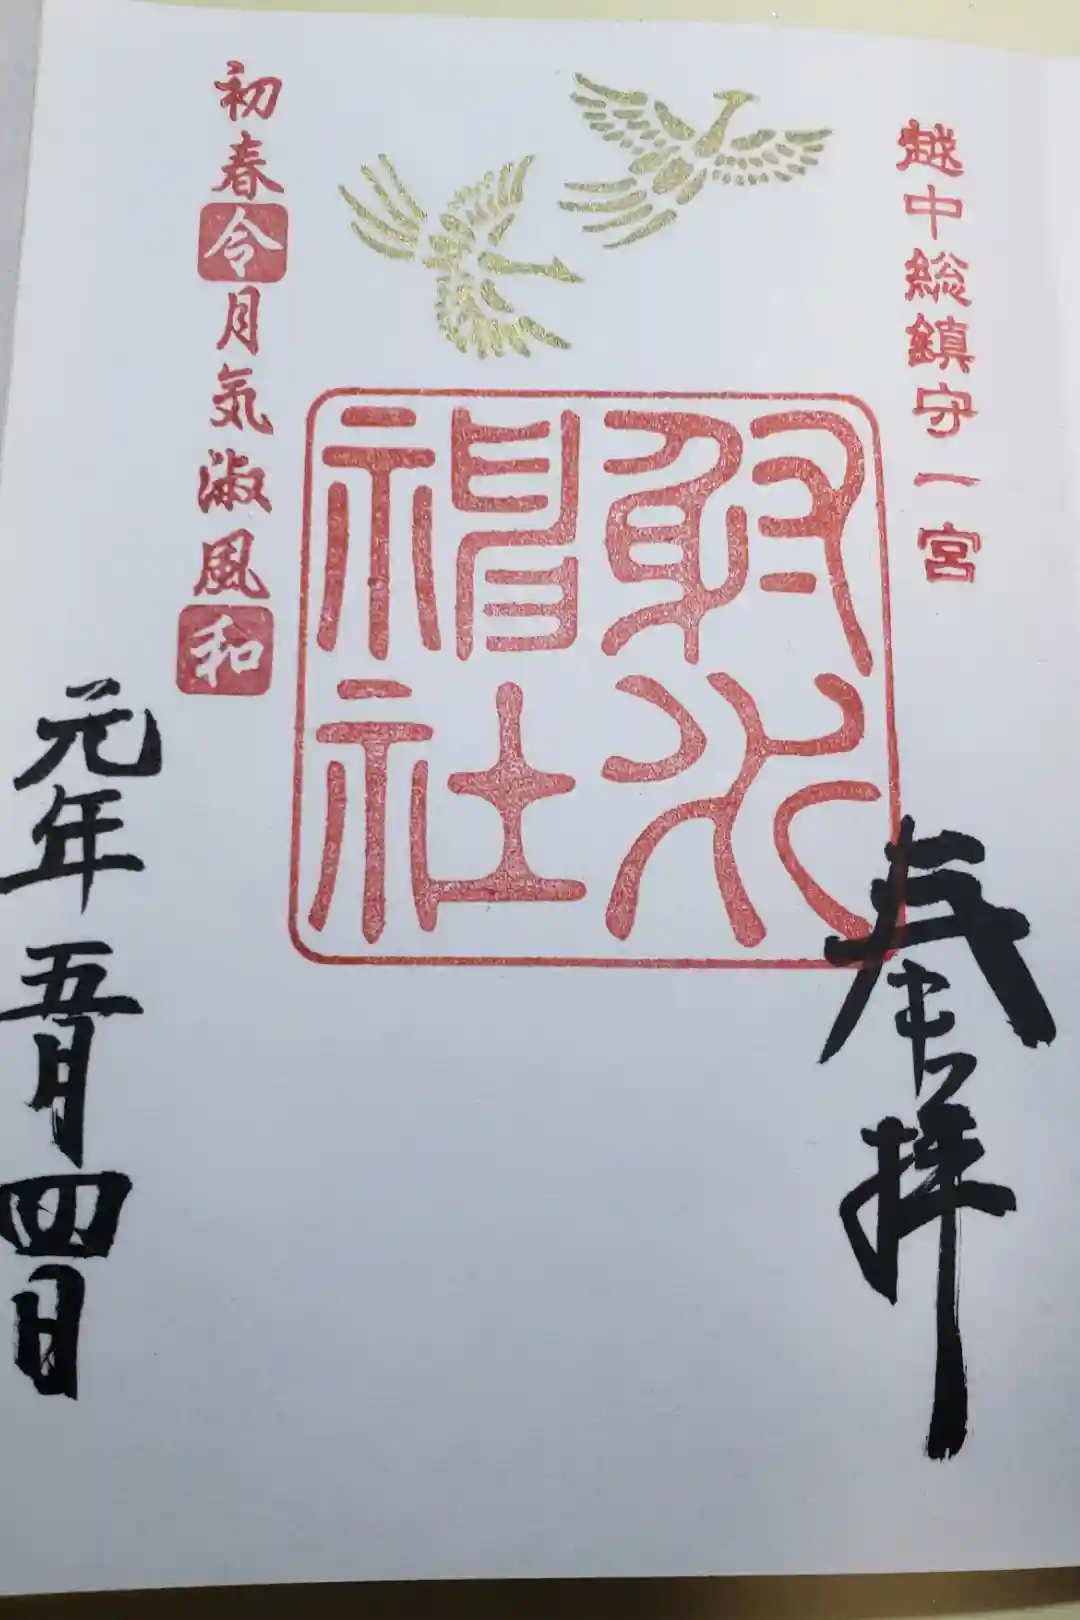 越中総鎮守一宮
奉拝
射水
神社
初春令月気淑風和
元年五月四日